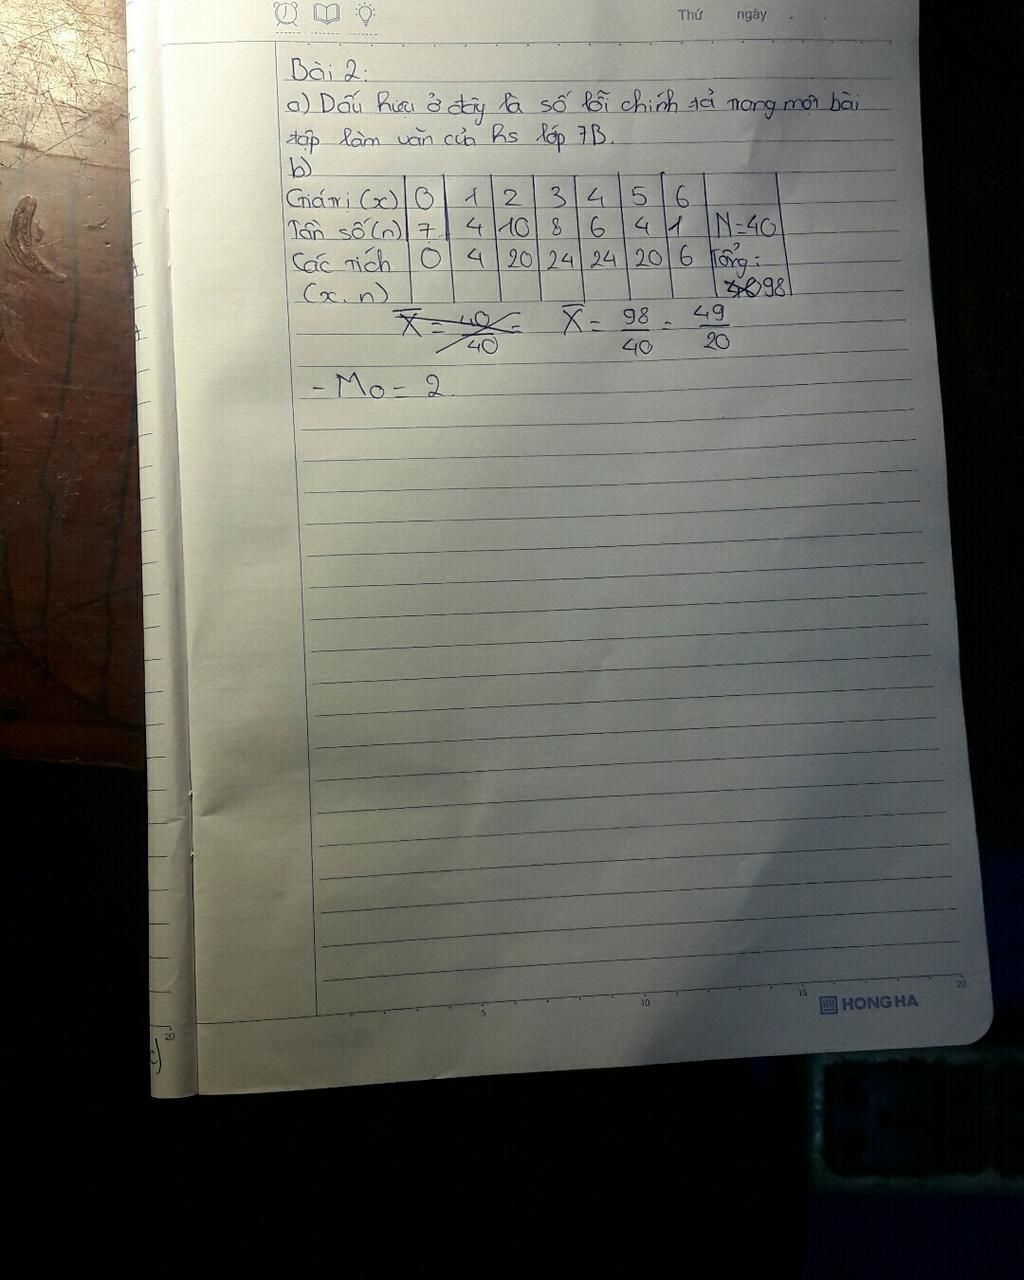 Thứ ngày . .
Bài 2:
a) Dấu hiệu ở đây là số lỗi chính tả trong một bài
tập làm văn của hs lớp 7B.
b)
Giá trị (x) 0 1 2 3 4 5 6
Tần số (n) 7 4 10 8 6 4 1 N=40
Các tích 0 4 20 24 24 20 6 Tổng:
(x.n) 98
X̄ = 40/40 = X̄ = 98/40 = 49/20
- Mo = 2.
5 10 15 20
HONG HA
20
c)